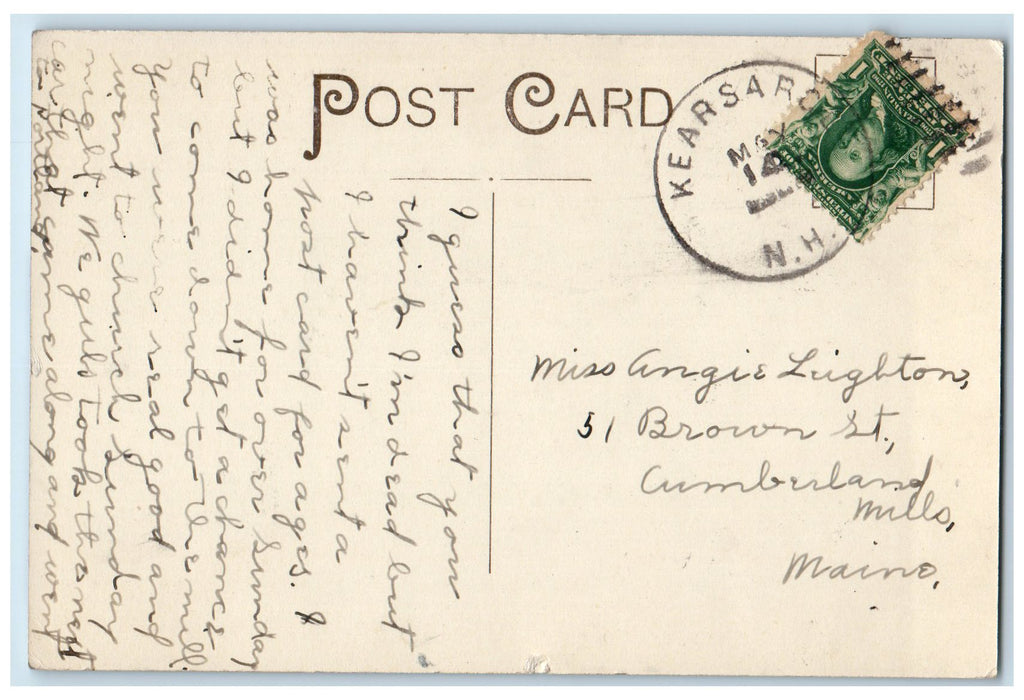 POST CARD
KEARSARGE
MAY
14
N.H.
I guess that you
think I'm dead but
I haven't sent a
post card for ages. I
was home for over Sunday
but I didn't get a chance
to come down to the mill.
You were real good and
went to church Sunday
night. We girls took the next
car that came along and went
Miss Angie Leighton,
51 Brown St.,
Cumberland
Mills,
Maine.